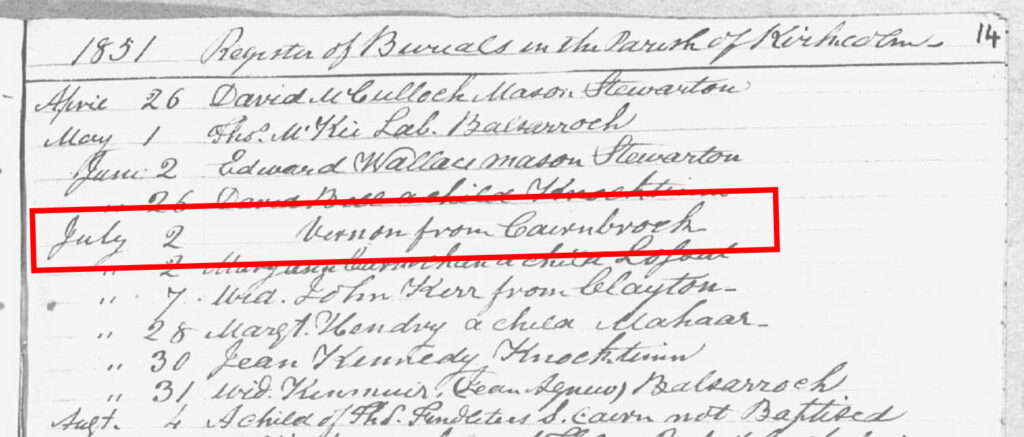 1851 Register of Burials in the Parish of Kirkcolm 14
April 26 David McCulloch Mason Stewarton
May 1 Thos. McKie Lab. Balsarroch
June 2 Edward Wallace mason Stewarton
" 26 David Bell a child Knocktinn
July 2 Vernon from Cairnbrock
" 2 Maryann a child
" 7 Wid. John Kerr from Clayton
" 28 Margt. Hendry a child Mahaar
" 30 Jean Kennedy Knocktinn
" 31 Wid. Kinmuir, (Jean Agnew) Balsarroch
Augt. 4 A child of Thos. Findleters S. Cairn not Baptised